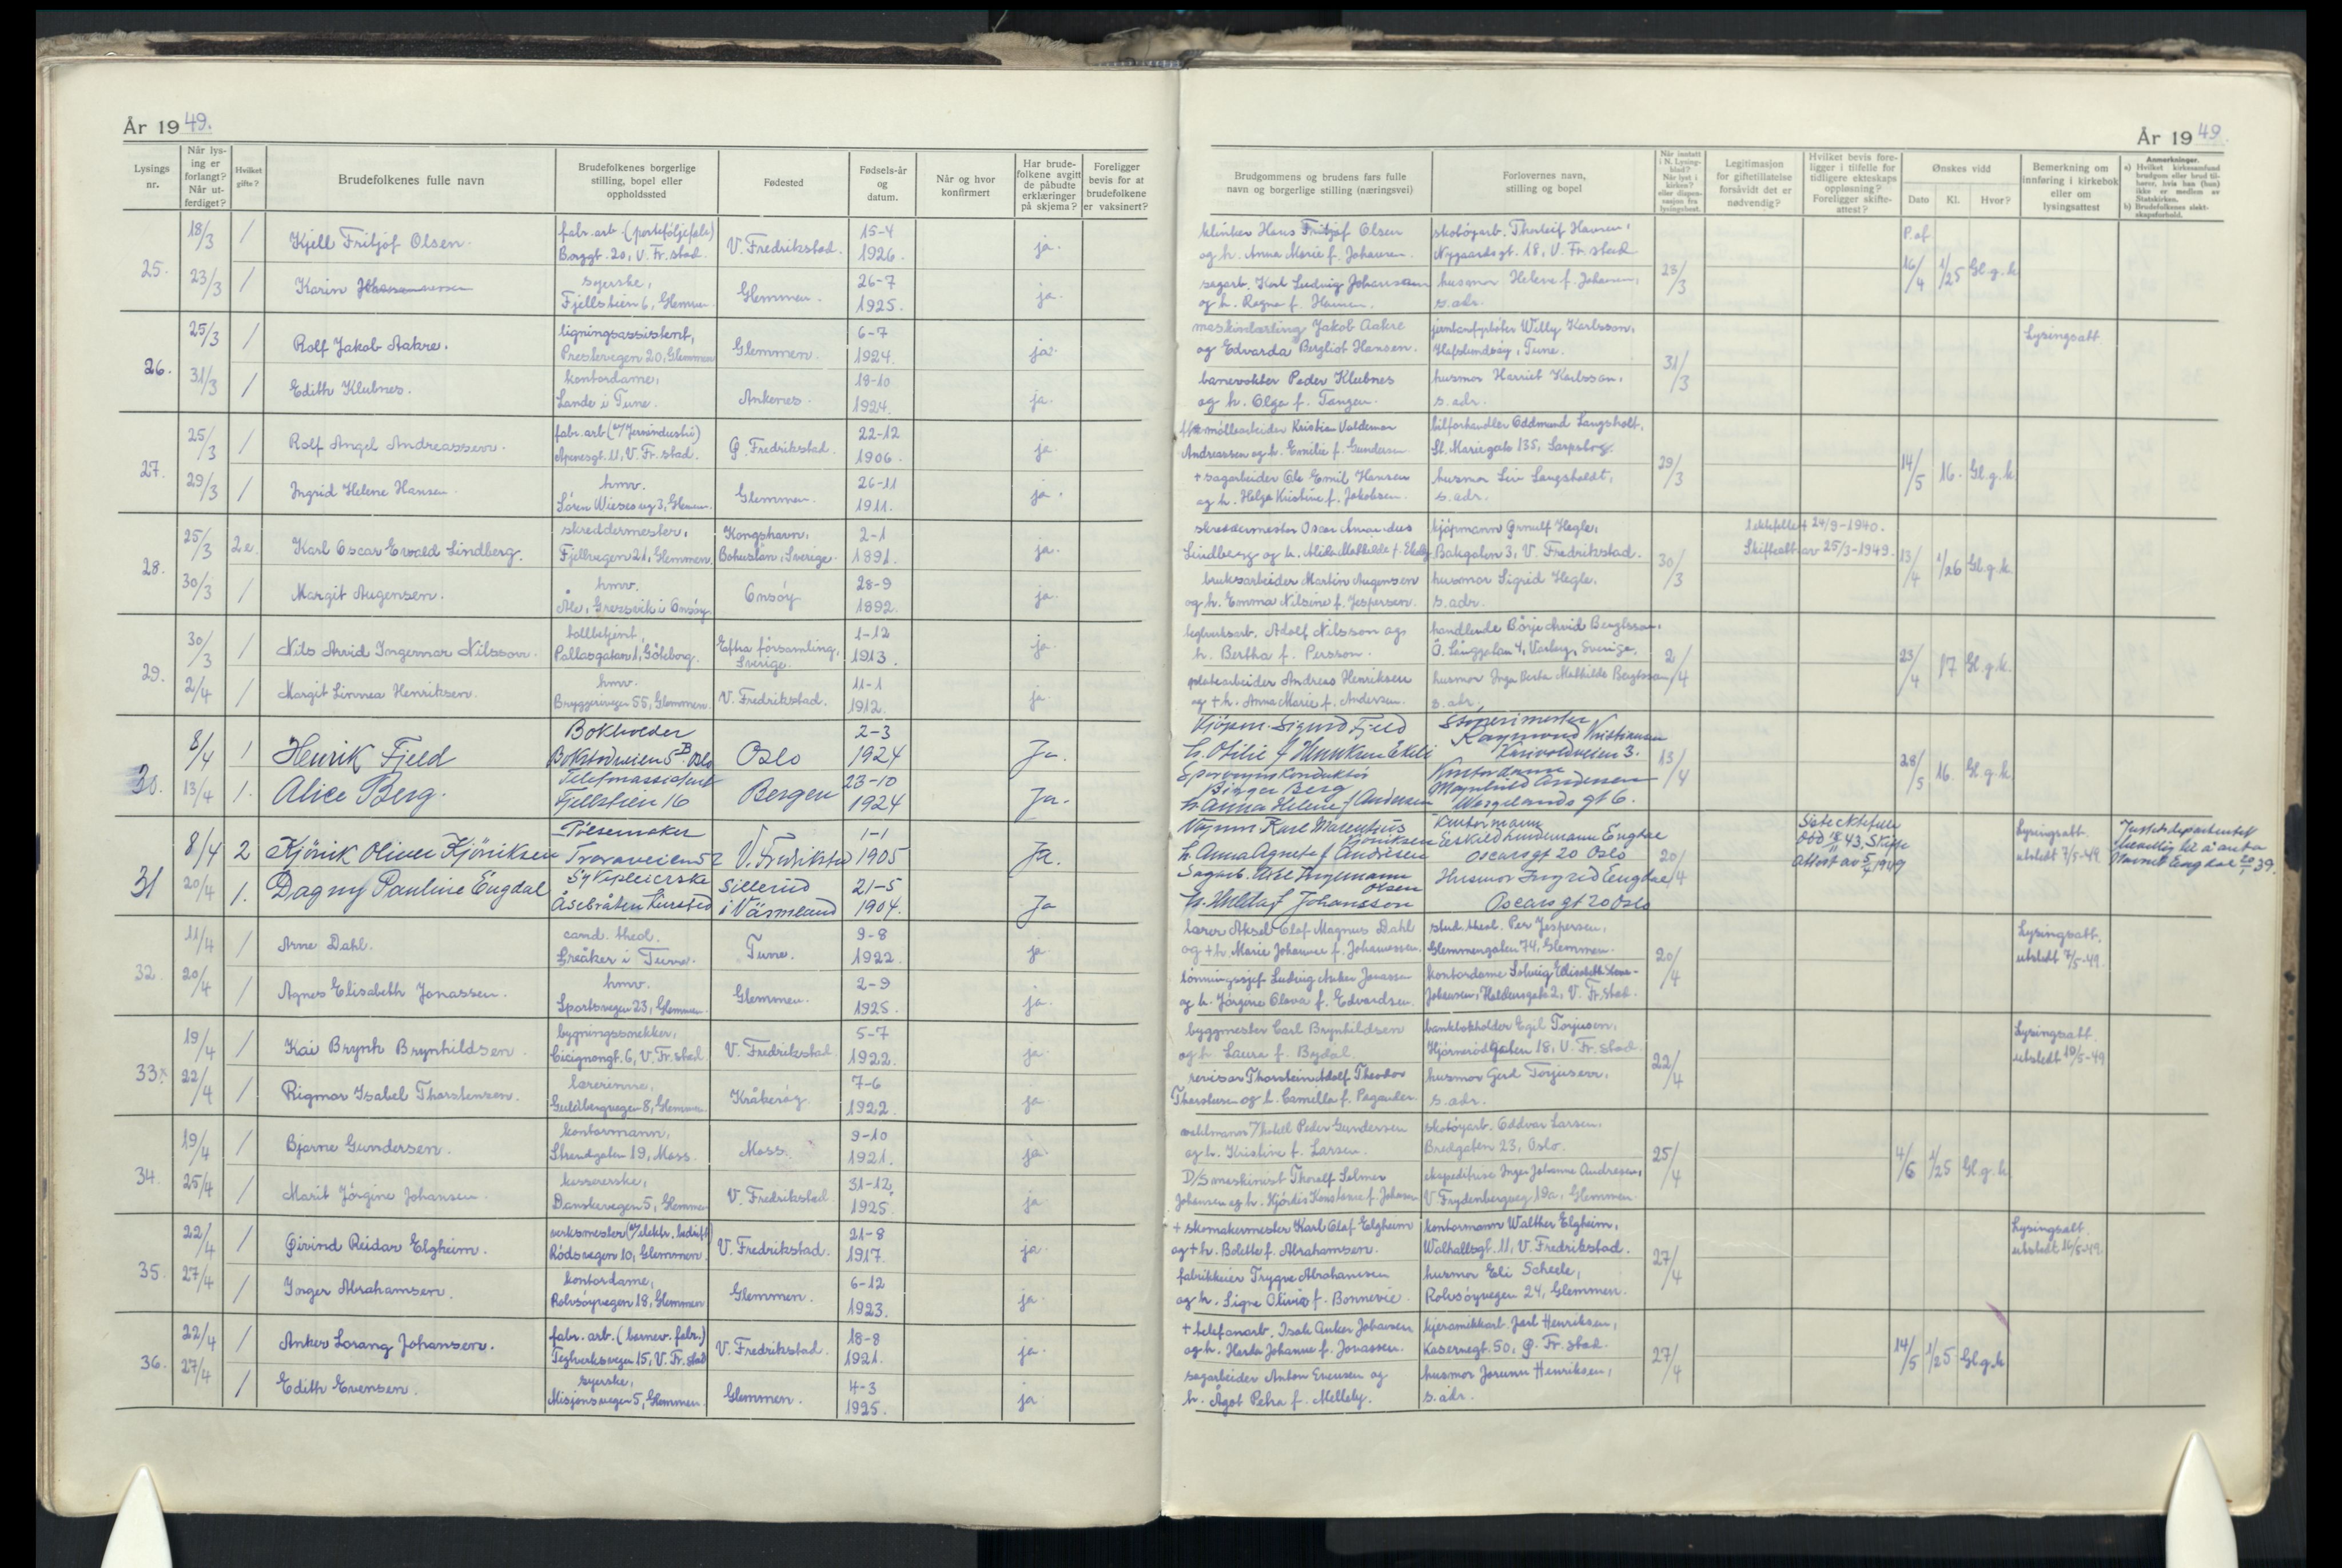 År 1949.
Lysings nr.
Når lysing er forlangt? Når utferdiget?
Hvilket gifte?
Brudefolkenes fulle navn
Brudefolkenes borgerlige stilling, bopel eller oppholdssted
Fødested
Fødsels-år og datum.
Når og hvor konfirmert
Har brudefolkene avgitt de påbudte erklæringer på skjema?
Foreligger bevis for at brudefolkene er vaksinert?
25. 18/3 1 Kjell Fritjof Olsen. fabr.arb. (porteføljefabr.) Borggt. 20, V. Fr.stad. V. Fredrikstad. 15-4 1926. ja.
23/3 1 Karin syerske, Fjellstien 6, Glemmen. Glemmen. 26-7 1925. ja.
26. 25/3 1 Rolf Jakob Aakre. ligningsassistent, Prestevegen 20, Glemmen Glemmen. 6-7 1924. ja.
31/3 1 Edith Klubnes. kontordame, Lande i Tune. Ankenes. 18-10 1924. ja.
27. 25/3 1 Rolf Angel Andreassen. fabr.arb. (v/Jernindustri) Apenesgt. 11, V. Fr.stad. Ø. Fredrikstad. 22-12 1906. ja.
29/3 1 Ingrid Helene Hansen. hmv. Sören Wieses veg 3, Glemmen. Glemmen. 26-11 1911. ja.
28. 25/3 2 e. Karl Oscar Ewald Lindberg. skreddermester, Fjellvegen 21, Glemmen. Kongshavn, Bohuslän, Sverige. 2-1 1891. ja.
30/3 1 Margit Augensen. hmv. Ale, Gressvik i Onsöy. Onsöy 28-9 1892. ja.
29. 30/3 1 Nils Arvid Ingemar Nilsson. tollbetjent, Pallasgatan 1, Göteborg. Eftra församling, Sverige. 1-12 1913. ja.
2/4 1 Margit Linnea Henriksen. hmv. Bryggerivegen 55, Glemmen. V. Fredrikstad. 11-1 1912. ja.
30. 8/4 1 Henrik Fjeld Bokholder Bokstadveien 5B Oslo Oslo 2-3 1924 Ja.
13/4 1. Alice Berg. Telefonassistent Fjellstien 16 Bergen 23-10 1924 Ja.
31 8/4 2 Kjönik Oliver Kjöniksen Pölsemaker Traraveien 52 V. Fredrikstad 1-1 1905 Ja.
20/4 1. Dagny Pauline Engdal Sykepleierske Åsebråten kursted Sillerud i Värmland 21-5 1904. Ja
32. 11/4 1 Arne Dahl. cand. theol. Greåker i Tune. Tune. 9-8 1922. ja
20/4 1 Agnes Elisabeth Jonassen. hmv. Sportsvegen 23, Glemmen. Glemmen. 2-9 1925. ja.
33. 19/4 1 Kai Brynh Brynhildsen. bygningssnekker, Cicignongt. 6, V. Fr.stad. V. Fredrikstad. 5-7 1922. ja.
22/4 1 Rigmor Isabel Thorstensen. lærerinne, Guldbergvegen 8, Glemmen. Kråkeröy. 7-6 1922. ja.
34. 19/4 1 Bjarne Gundersen. kontormann, Strandgaten 19, Moss. Moss. 9-10 1921. ja.
25/4 1 Marit Jörgine Johansen. kassererske, Danskevegen 5, Glemmen V. Fredrikstad. 31-12 1925. ja.
35. 22/4 1 Øivind Reidar Elgheim. verksmester (v/elektr. bedrift) Rödsvegen 10, Glemmen. V. Fredrikstad. 21-8 1917. ja.
27/4 1 Inger Abrahamsen. kontordame, Rolvsöyvegen 18, Glemmen Glemmen. 6-12 1923. ja.
36. 22/4 1 Anker Lorang Johansen. fabr. arb. (barnev. fabr.) Teglverksvegen 15, V. Fr.stad V. Fredrikstad. 18-8 1921. ja.
27/4 1 Edith Evensen. syerske, Misjonsvegen 5, Glemmen. Glemmen. 4-3 1925. ja
År 1949
Brudgommens og brudens fars fulle navn og borgerlige stilling (næringsvei)
Forlovernes navn, stilling og bopel
Når inntatt i N. Lysingsblad? Når lyst i kirken? eller dispensasjon fra lysningsbest.
Legitimasjon for giftetillatelse forsåvidt det er nødvendig?
Hvilket bevis foreligger i tilfelle for tidligere ekteskaps oppløsning? Foreligger skifteattest?
Ønskes vidd
Dato Kl. Hvor?
Bemerkning om innføring i kirkebok eller om lysingsattest
Anmerkninger.
a) Hvilket kirkesamfund brudgom eller brud tilhører, hvis han (hun) ikke er medlem av Statskirken.
b) Brudefolkenes slektskapsforhold.
klinker Hans Fritjof Olsen og h. Anna Marie f. Johansen. skotöyarb. Thorleif Hansen, Nygaardsgt. 18, V. Fr.stad P.af
sagarb. Karl Ludvig Johansen og h. Ragna f. Hansen. husmor Helene f. Johansen, s. adr. 23/3 16/4 1/2 5 Gl. g. k.
maskinlærling Jakob Aakre og Edvarda Bergliot Hansen. Willy Karlsson, Hafslundsöy, Tune. Lysingsatt.
banevokter Peder Klubnes og h. Olga f. Tangen. husmor Harriet Karlsson, s. adr. 31/3
möllearbeider Kristian Valdemar Andreassen og h. Emilie f. Gundersen bilforhandler Oddmund Langsholt, St. Mariegate 135, Sarpsborg.
+ sagarbeider Ole Emil Hansen og h. Helga Kristine f. Jakobsen. husmor Liv Langsholdt, s. adr. 29/3 14/5 16. Gl. g. k.
skreddermester Oscar Amandus Lindberg og h. Alida Mathilde f. kjöpmann Ørnulf Hegle, Bakgaten 3, V. Fredrikstad. 1. ektefelle + 24/9-1940. Skifteatt. av 25/3-1949.
bruksarbeider Martin Augensen og h. Emma Nilsine f. Jespersen. husmor Sigrid Hegle, s. adr. 30/3 13/4 1/2 6 Gl. g. k.
teglverksarb. Adolf Nilsson og h. Bertha f. Persson. handlende Börje Arvid Bengtsson, Ö. Långgatan 4, Varberg, Sverige.
platearbeider Andreas Henriksen og + h. Anna Marie f. Andersen. husmor Inga Berta Mathilde Bengtsson s. adr. 2/4 23/4 17 Gl. g. k.
Kjöpm. Sigurd Fjeld h. Otilie f Henriksen Ekeli Støperimester Raymond Kristiansen 3.
Sporvognskonduktör Birger Berg h. Anna Helene f Andersen Kontordame Magnhild Andersen Wergelands gt 6. 13/4 28/5 16. Gl. g. k.
Vognm Karl Marentius Kjöniksen h. Anna Agnete f Andresen Kontormann Eskild Lindemann Engdal Oscars gt 20 Oslo Siste ektefelle död 18/11 43. Skifteattest av 5/4 1949 Lysingsatt. utstedt 7/5-49. Justisdepartementets bevilling til å anta navnet Engdal 20/1 39.
Sagarb. Axel Ingemann Olsen h. Hulda f Johansson Husmor Ingrid Engdal Oscars gt 20 Oslo 20/4
lærer Aksel Olaf Magnus Dahl og + h. Marie Johanne f. Johannessen. stud. theol. Per Jespersen, Glemmengaten 74, Glemmen. Lysingsatt. utstedt 7/5-49.
lönningssjef Ludvig Anker Jonassen og h. Jörgine Olava f. Edvardsen. kontordame Solveig Elisabeth Johansen, Haldensgate 2, V. Fr.stad. 20/4
byggmester Carl Brynhildsen og h. Laura f. Bydal. bankbokholder Egil Torjusen, Hjörnerödgaten 18, V. Fr.stad. Lysingsatt. utstedt 10/5-49
revisor Thorstein Adolf Theodor Thorstensen og h. Camilla f. Pagander. husmor Gerd Torjusen, s. adr. 22/4
Peder Gundersen og h. Kristine f. Larsen. skotöyarb. Oddvar Larsen, Bredgaten 23, Oslo.
D/S maskinist Thoralf Selmer Johansen og h. Hjördis Konstanse f. Johnsen ekspeditrise Inger Johanne Andresen, V Frydenbergveg 19a, Glemmen. 25/4 4/6 1/2 5 Gl. g. k
+ skomakermester Karl Olaf Elgheim og + h. Bolette f. Abrahamsen. kontormann Walther Elgheim, Walhallsgt. 11, V. Fredrikstad. Lysingsatt. utstedt 16/5-49.
fabrikkeier Trygve Abrahamsen og h. Signe Olivia f. Bonnevie. husmor Eli Scheele, Rolvsöyvegen 24, Glemmen. 27/4
+ telefonarb. Isak Anker Johansen og h. Herda Johanne f. Jonassen. kjeramikkarb. Jarl Henriksen, Kasernegt. 50, Ø. Fr.stad.
sagarbeider Anton Evensen og h. Ågot Petra f. Melleby. husmor Jorunn Henriksen, s. adr. 27/4 14/5 1/2 5 Gl. g. k